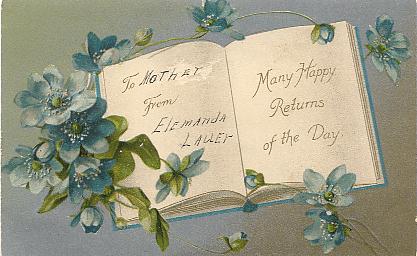 To Mother
From
Elemanda
Lauer
Many Happy
Returns
of the Day.